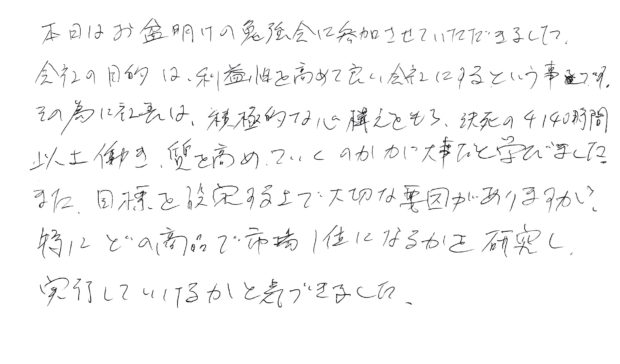 本日はお盆明けの勉強会に参加させていただきました。
会社の目的は、利益性を高めて良い会社にするという事です。
その為に社長は、積極的な心構えをもち、決死の4140時間
以上働き、質を高めていくのかが大事だと学びました。
また、目標を設定する上で大切な要因がありますが、
特にどの商品で市場1位になるかを研究し、
実行していけるかと気づきました。